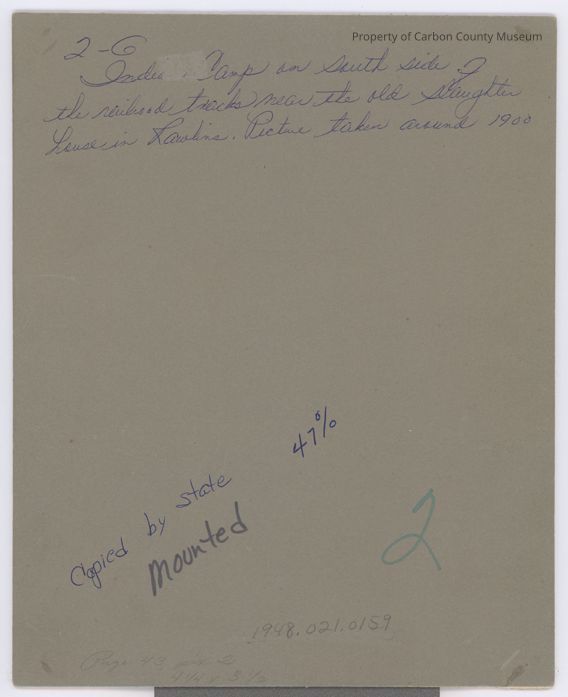 Property of Carbon County Museum
2-6
Camp on South side of
the railroad tracks near the old Slaughter
house in Rawlins. Picture taken around 1900
47%
Copied by state
Mounted
2
1948.021.0159
Page 43